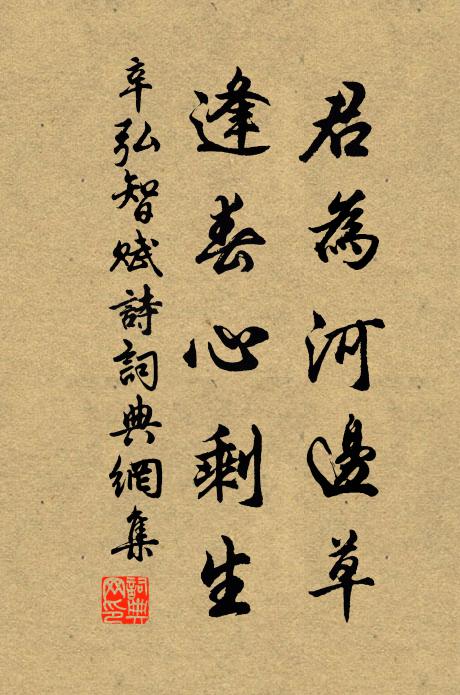 君為河邊草
逢春心剩生
辛弘智賦詩詞典網集
詞典網印